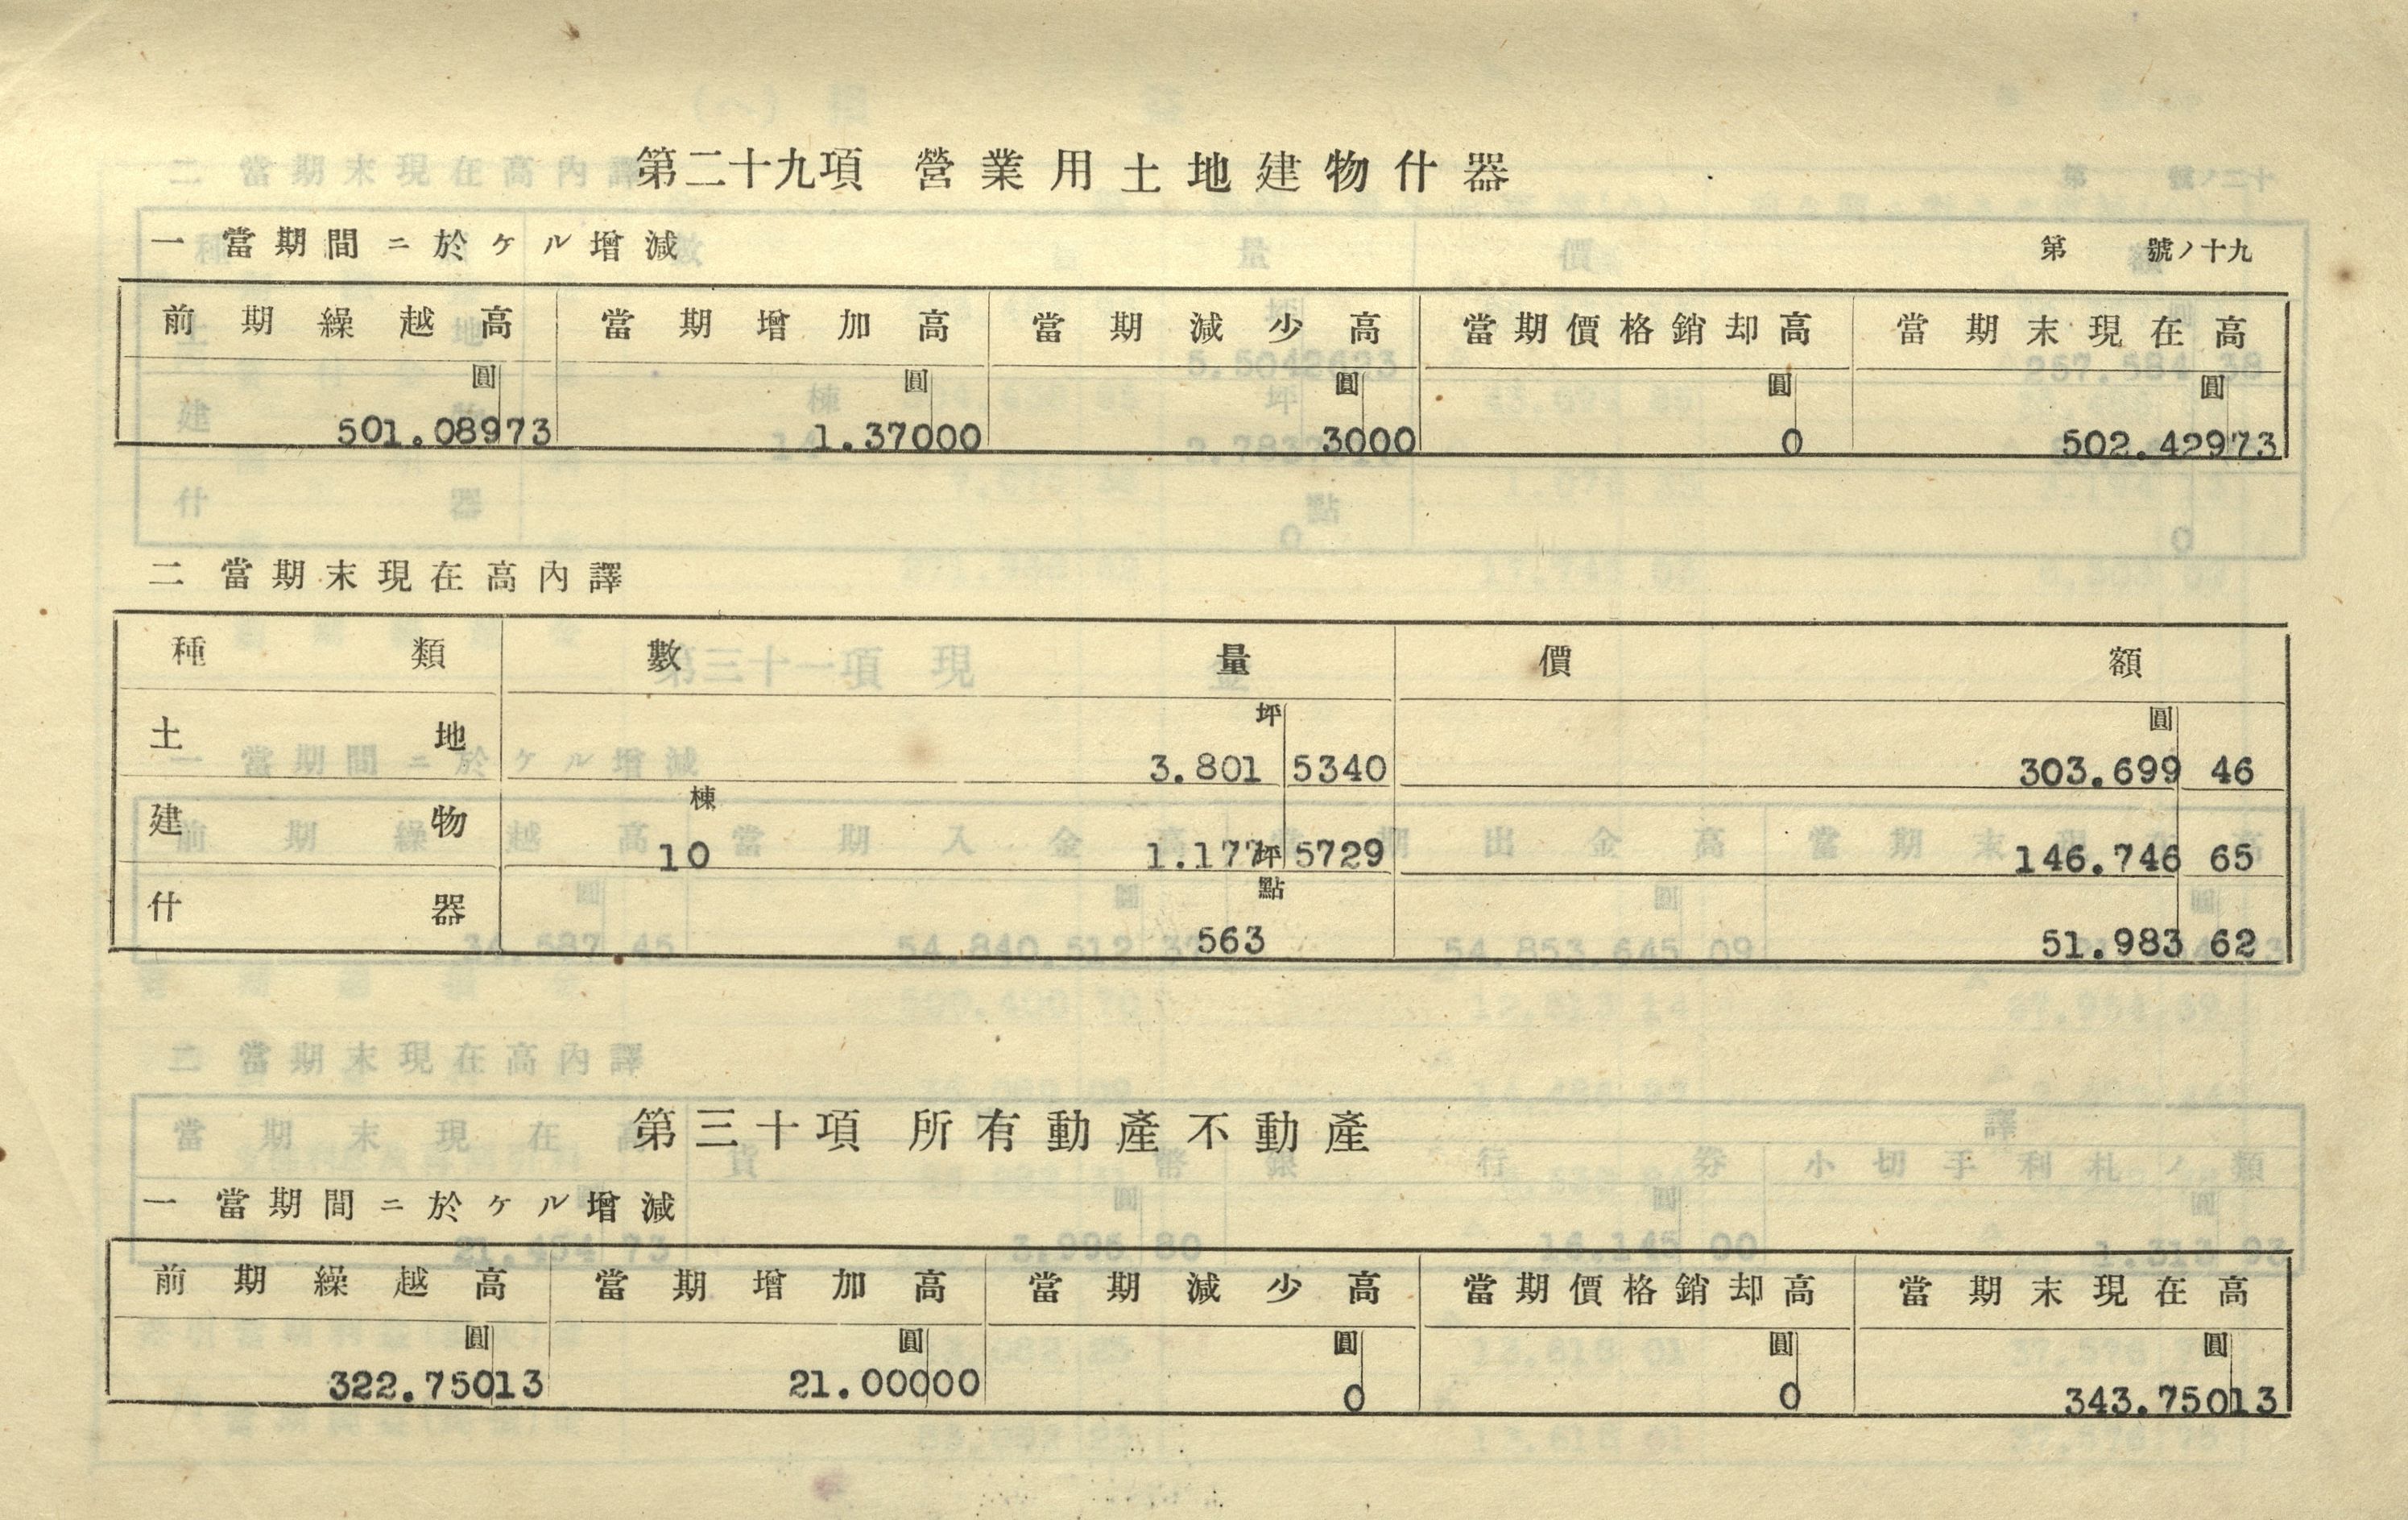 第二十九項 營業用土地建物什器
一 當期間ニ於ケル增減 第 號ノ十九
前期繰越高 當期增加高 當期減少高 當期價格銷却高 當期末現在高
圓 圓 圓 圓 圓
501.08973 1.37000 3000 0 502.42973
二 當期末現在高內譯
種類 數量 價額
坪 圓
土地 3.801 5340 303.699 46
棟
建物 10 1.177坪 5729 146.746 65
點
什器 563 51.983 62
第三十項 所有動產不動產
一 當期間ニ於ケル增減
前期繰越高 當期增加高 當期減少高 當期價格銷却高 當期末現在高
圓 圓 圓 圓 圓
322.75013 21.00000 0 0 343.75013